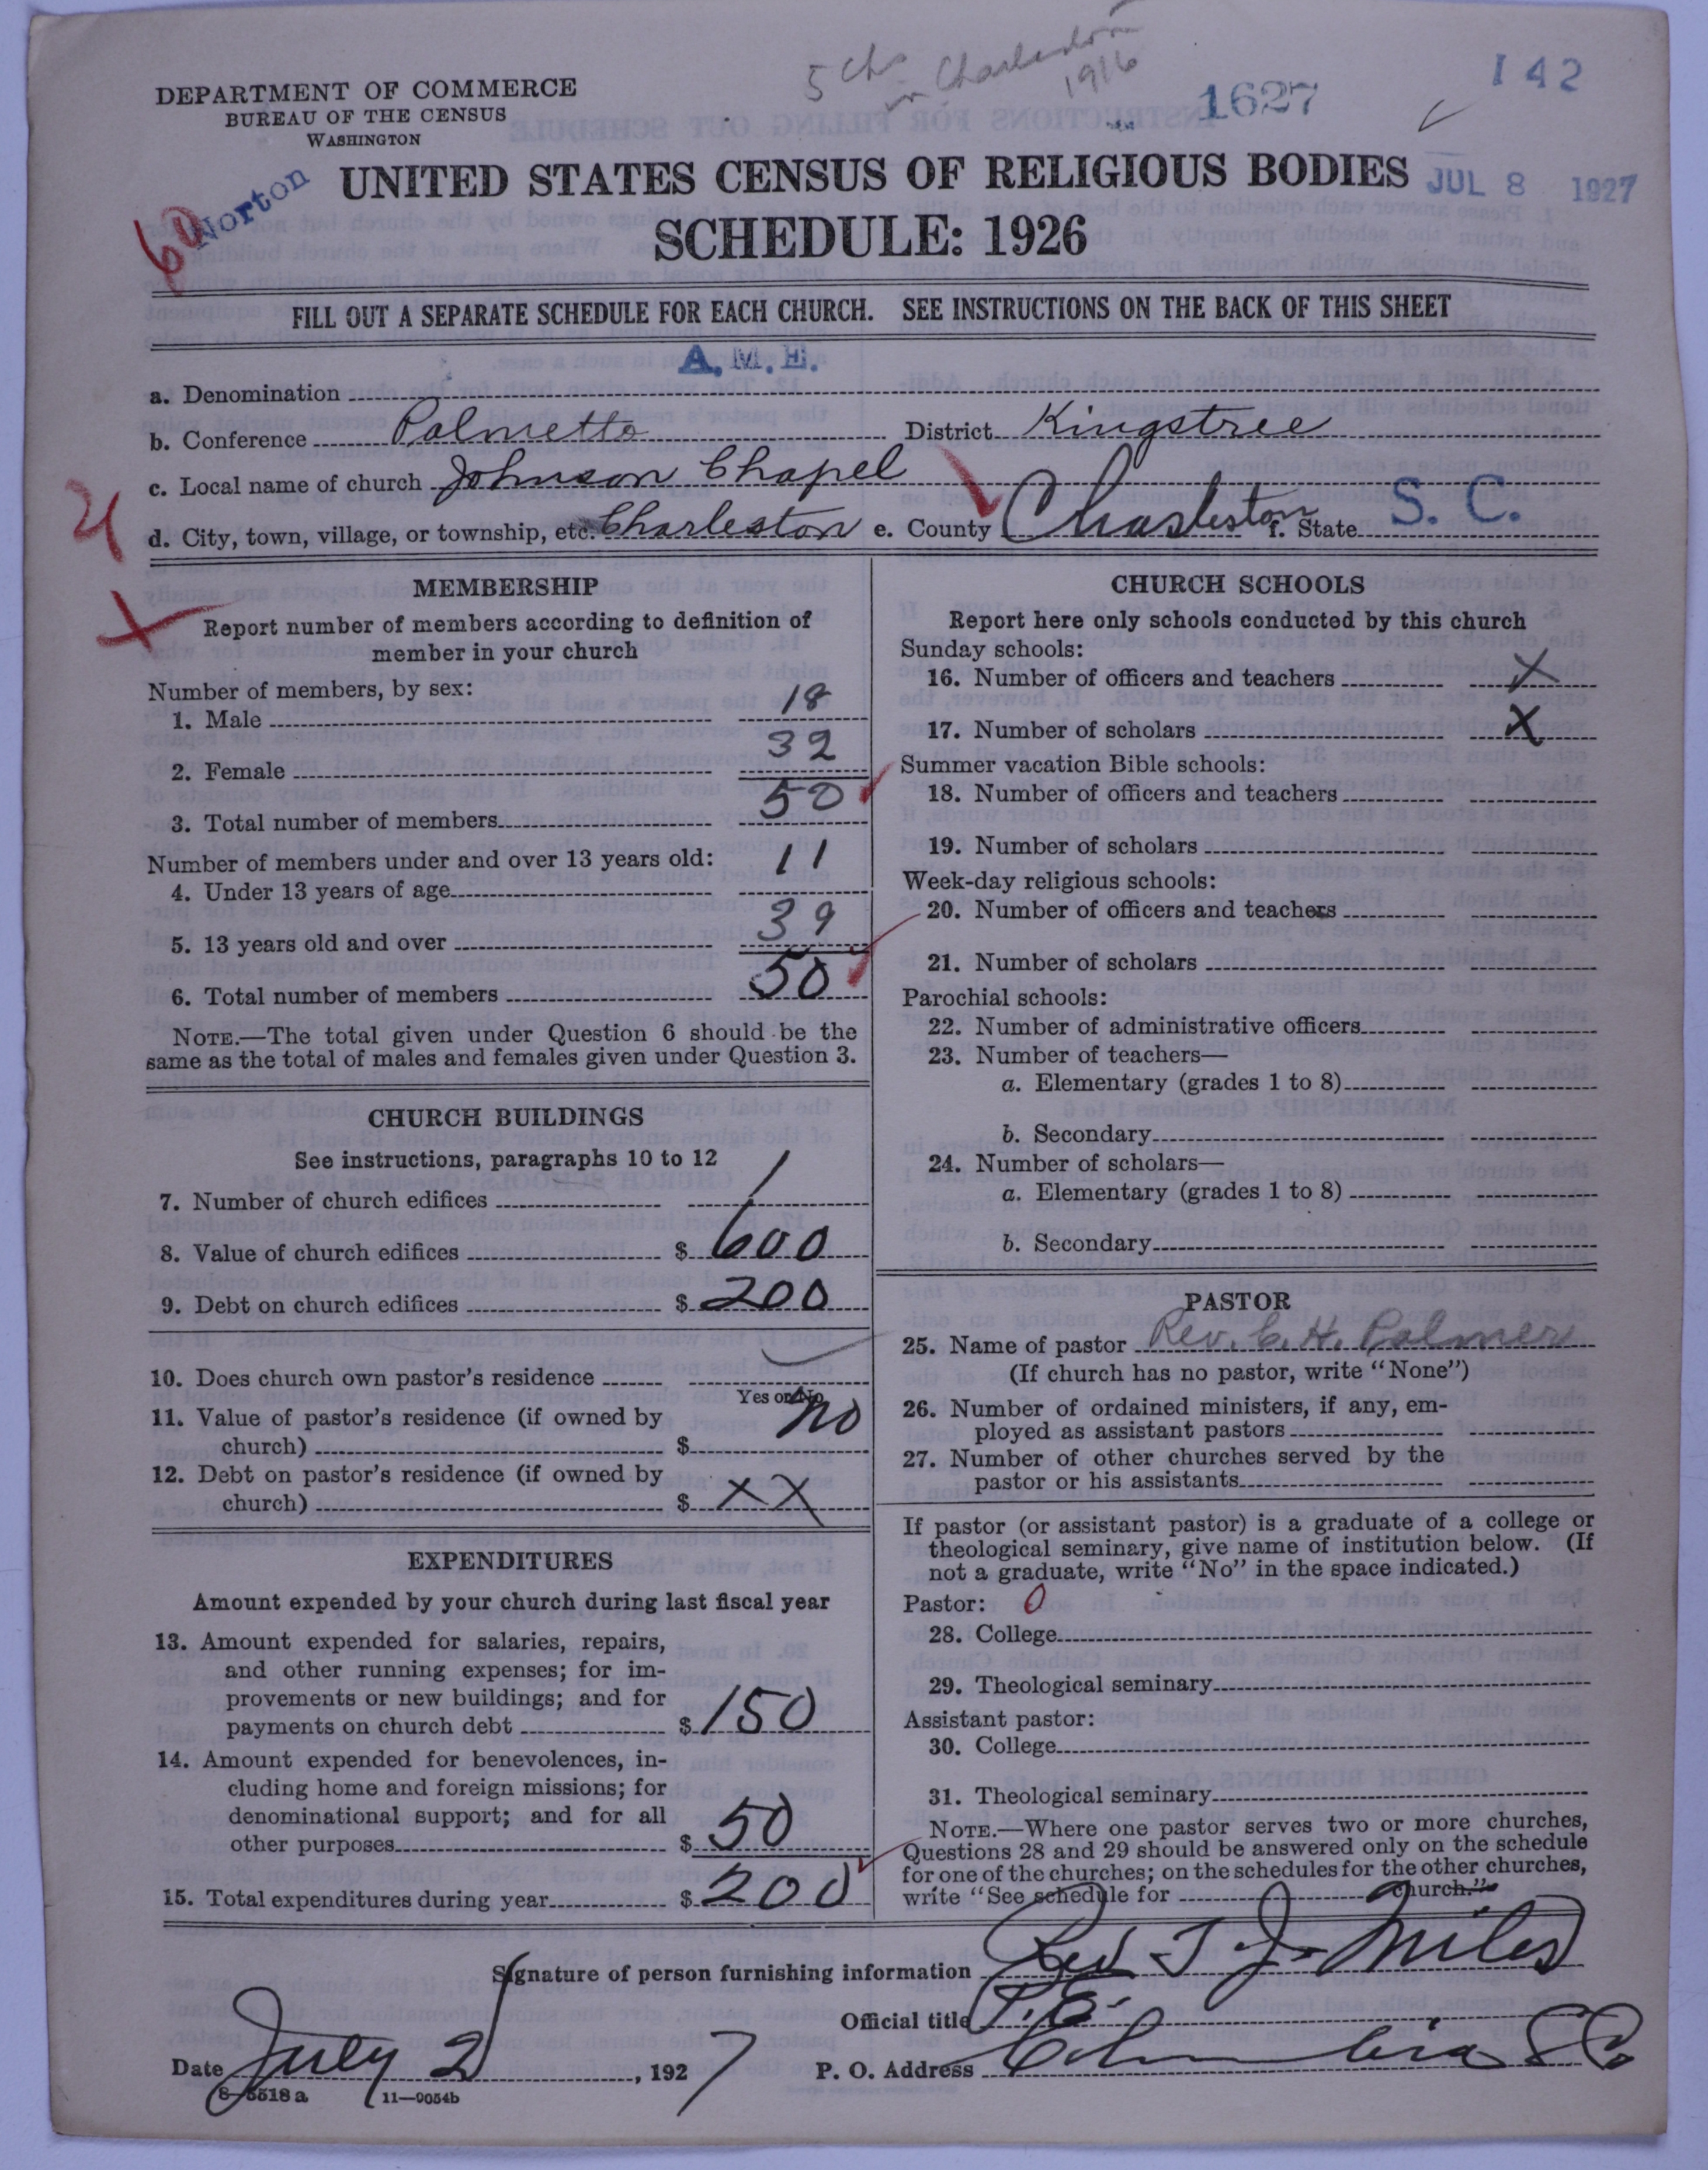 5 chs in Charleston 1916
1627
142
DEPARTMENT OF COMMERCE
BUREAU OF THE CENSUS
WASHINGTON
Norton
60
UNITED STATES CENSUS OF RELIGIOUS BODIES
JUL 8 1927
SCHEDULE: 1926
FILL OUT A SEPARATE SCHEDULE FOR EACH CHURCH. SEE INSTRUCTIONS ON THE BACK OF THIS SHEET
a. Denomination A. M. E.
b. Conference Palmetto District Kingstree
c. Local name of church Johnson Chapel
d. City, town, village, or township, etc. Charleston e. County Charleston f. State S. C.
MEMBERSHIP
Report number of members according to definition of
member in your church
Number of members, by sex:
1. Male 18
2. Female 32
3. Total number of members 50
Number of members under and over 13 years old:
4. Under 13 years of age 11
5. 13 years old and over 39
6. Total number of members 50
NOTE.—The total given under Question 6 should be the
same as the total of males and females given under Question 3.
CHURCH BUILDINGS
See instructions, paragraphs 10 to 12
7. Number of church edifices 1
8. Value of church edifices $ 600
9. Debt on church edifices $ 200
10. Does church own pastor's residence
Yes or No
no
11. Value of pastor's residence (if owned by
church) $
12. Debt on pastor's residence (if owned by
church) $ XX
EXPENDITURES
Amount expended by your church during last fiscal year
13. Amount expended for salaries, repairs,
and other running expenses; for im-
provements or new buildings; and for
payments on church debt $ 150
14. Amount expended for benevolences, in-
cluding home and foreign missions; for
denominational support; and for all
other purposes $ 50
15. Total expenditures during year $ 200
CHURCH SCHOOLS
Report here only schools conducted by this church
Sunday schools:
16. Number of officers and teachers X
17. Number of scholars X
Summer vacation Bible schools:
18. Number of officers and teachers
19. Number of scholars
Week-day religious schools:
20. Number of officers and teachers
21. Number of scholars
Parochial schools:
22. Number of administrative officers
23. Number of teachers—
a. Elementary (grades 1 to 8)
b. Secondary
24. Number of scholars—
a. Elementary (grades 1 to 8)
b. Secondary
PASTOR
25. Name of pastor Rev. C. H. Palmer
(If church has no pastor, write "None")
26. Number of ordained ministers, if any, em-
ployed as assistant pastors
27. Number of other churches served by the
pastor or his assistants
If pastor (or assistant pastor) is a graduate of a college or
theological seminary, give name of institution below. (If
not a graduate, write "No" in the space indicated.)
Pastor: 0
28. College
29. Theological seminary
Assistant pastor:
30. College
31. Theological seminary
NOTE.—Where one pastor serves two or more churches,
Questions 28 and 29 should be answered only on the schedule
for one of the churches; on the schedules for the other churches,
write "See schedule for church."
Signature of person furnishing information Rev T J Miles
Official title P. E.
Date July 2, 1927 P. O. Address Columbia S C
8-5518 a 11—9054b